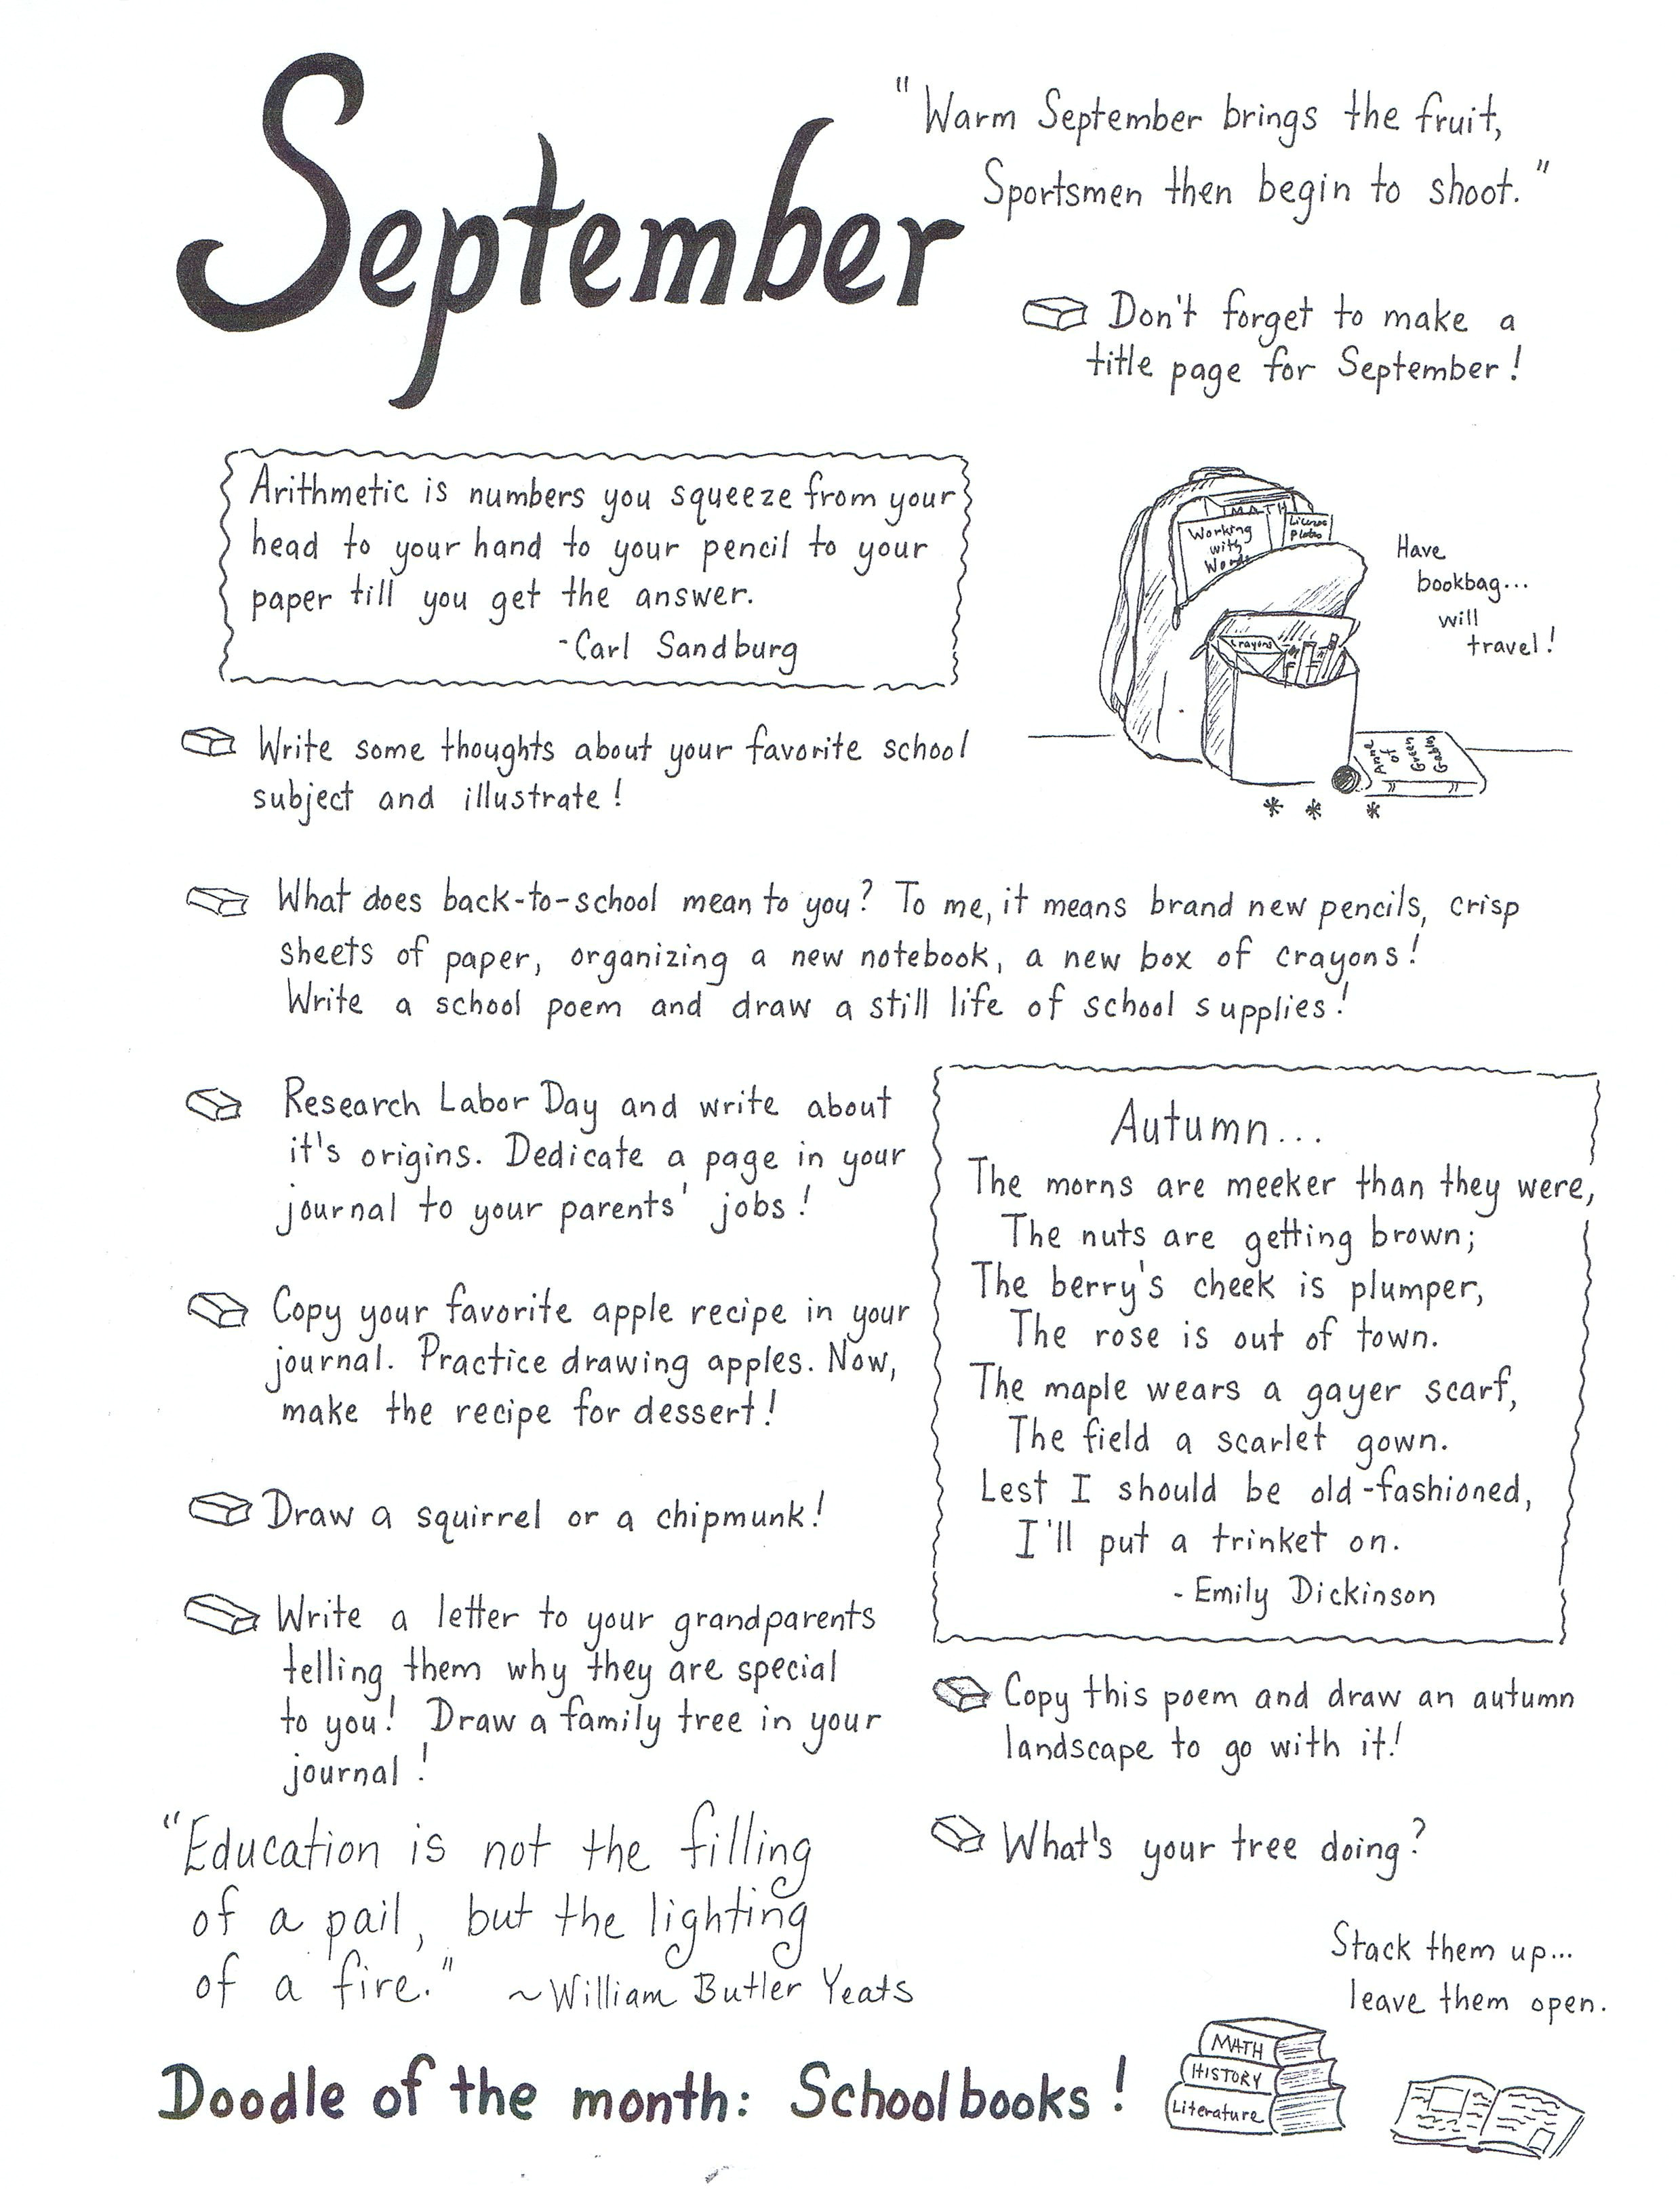 September
"Warm September brings the fruit,
Sportsmen then begin to shoot."
Don't forget to make a
title page for September!
Arithmetic is numbers you squeeze from your
head to your hand to your pencil to your
paper till you get the answer.
-Carl Sandburg
MATH
Working
with
Words
License
Plates
Crayons
Anne
of
Green
Gables
Have
bookbag...
will
travel!
Write some thoughts about your favorite school
subject and illustrate!
What does back-to-school mean to you? To me, it means brand new pencils, crisp
sheets of paper, organizing a new notebook, a new box of crayons!
Write a school poem and draw a still life of school supplies!
Research Labor Day and write about
it's origins. Dedicate a page in your
journal to your parents' jobs!
Copy your favorite apple recipe in your
journal. Practice drawing apples. Now,
make the recipe for dessert!
Draw a squirrel or a chipmunk!
Write a letter to your grandparents
telling them why they are special
to you! Draw a family tree in your
journal!
Autumn...
The morns are meeker than they were,
The nuts are getting brown;
The berry's cheek is plumper,
The rose is out of town.
The maple wears a gayer scarf,
The field a scarlet gown.
Lest I should be old-fashioned,
I'll put a trinket on.
- Emily Dickinson
Copy this poem and draw an autumn
landscape to go with it!
What's your tree doing?
"Education is not the filling
of a pail, but the lighting
of a fire." ~William Butler Yeats
Stack them up...
leave them open.
MATH
HISTORY
Literature
Doodle of the month: Schoolbooks!